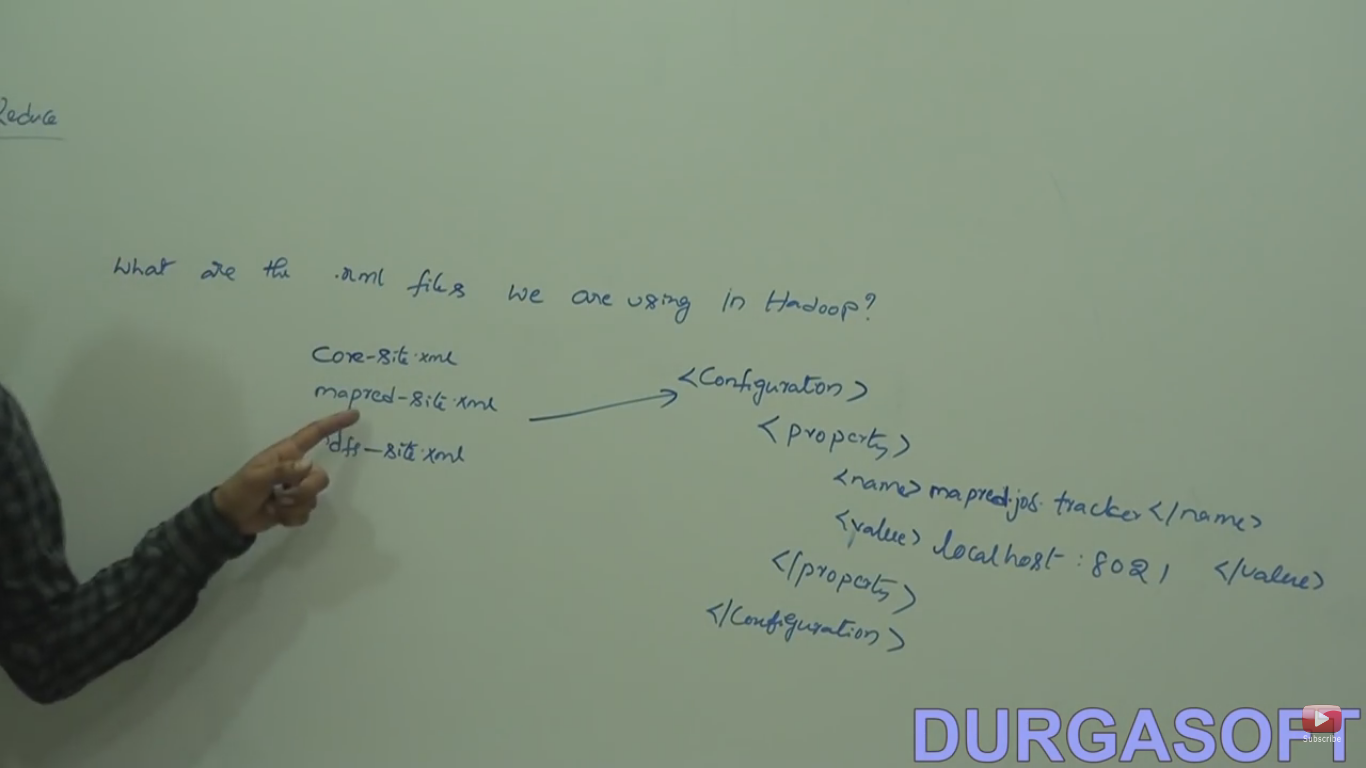 Reduce
What are the .xml files we are using in Hadoop?
Core-site.xml
mapred-site.xml
dfs-site.xml
<Configuration>
<property>
<name>mapred.job.tracker</name>
<value>localhost:8021</value>
</property>
</Configuration>
DURGASOFT
Subscribe